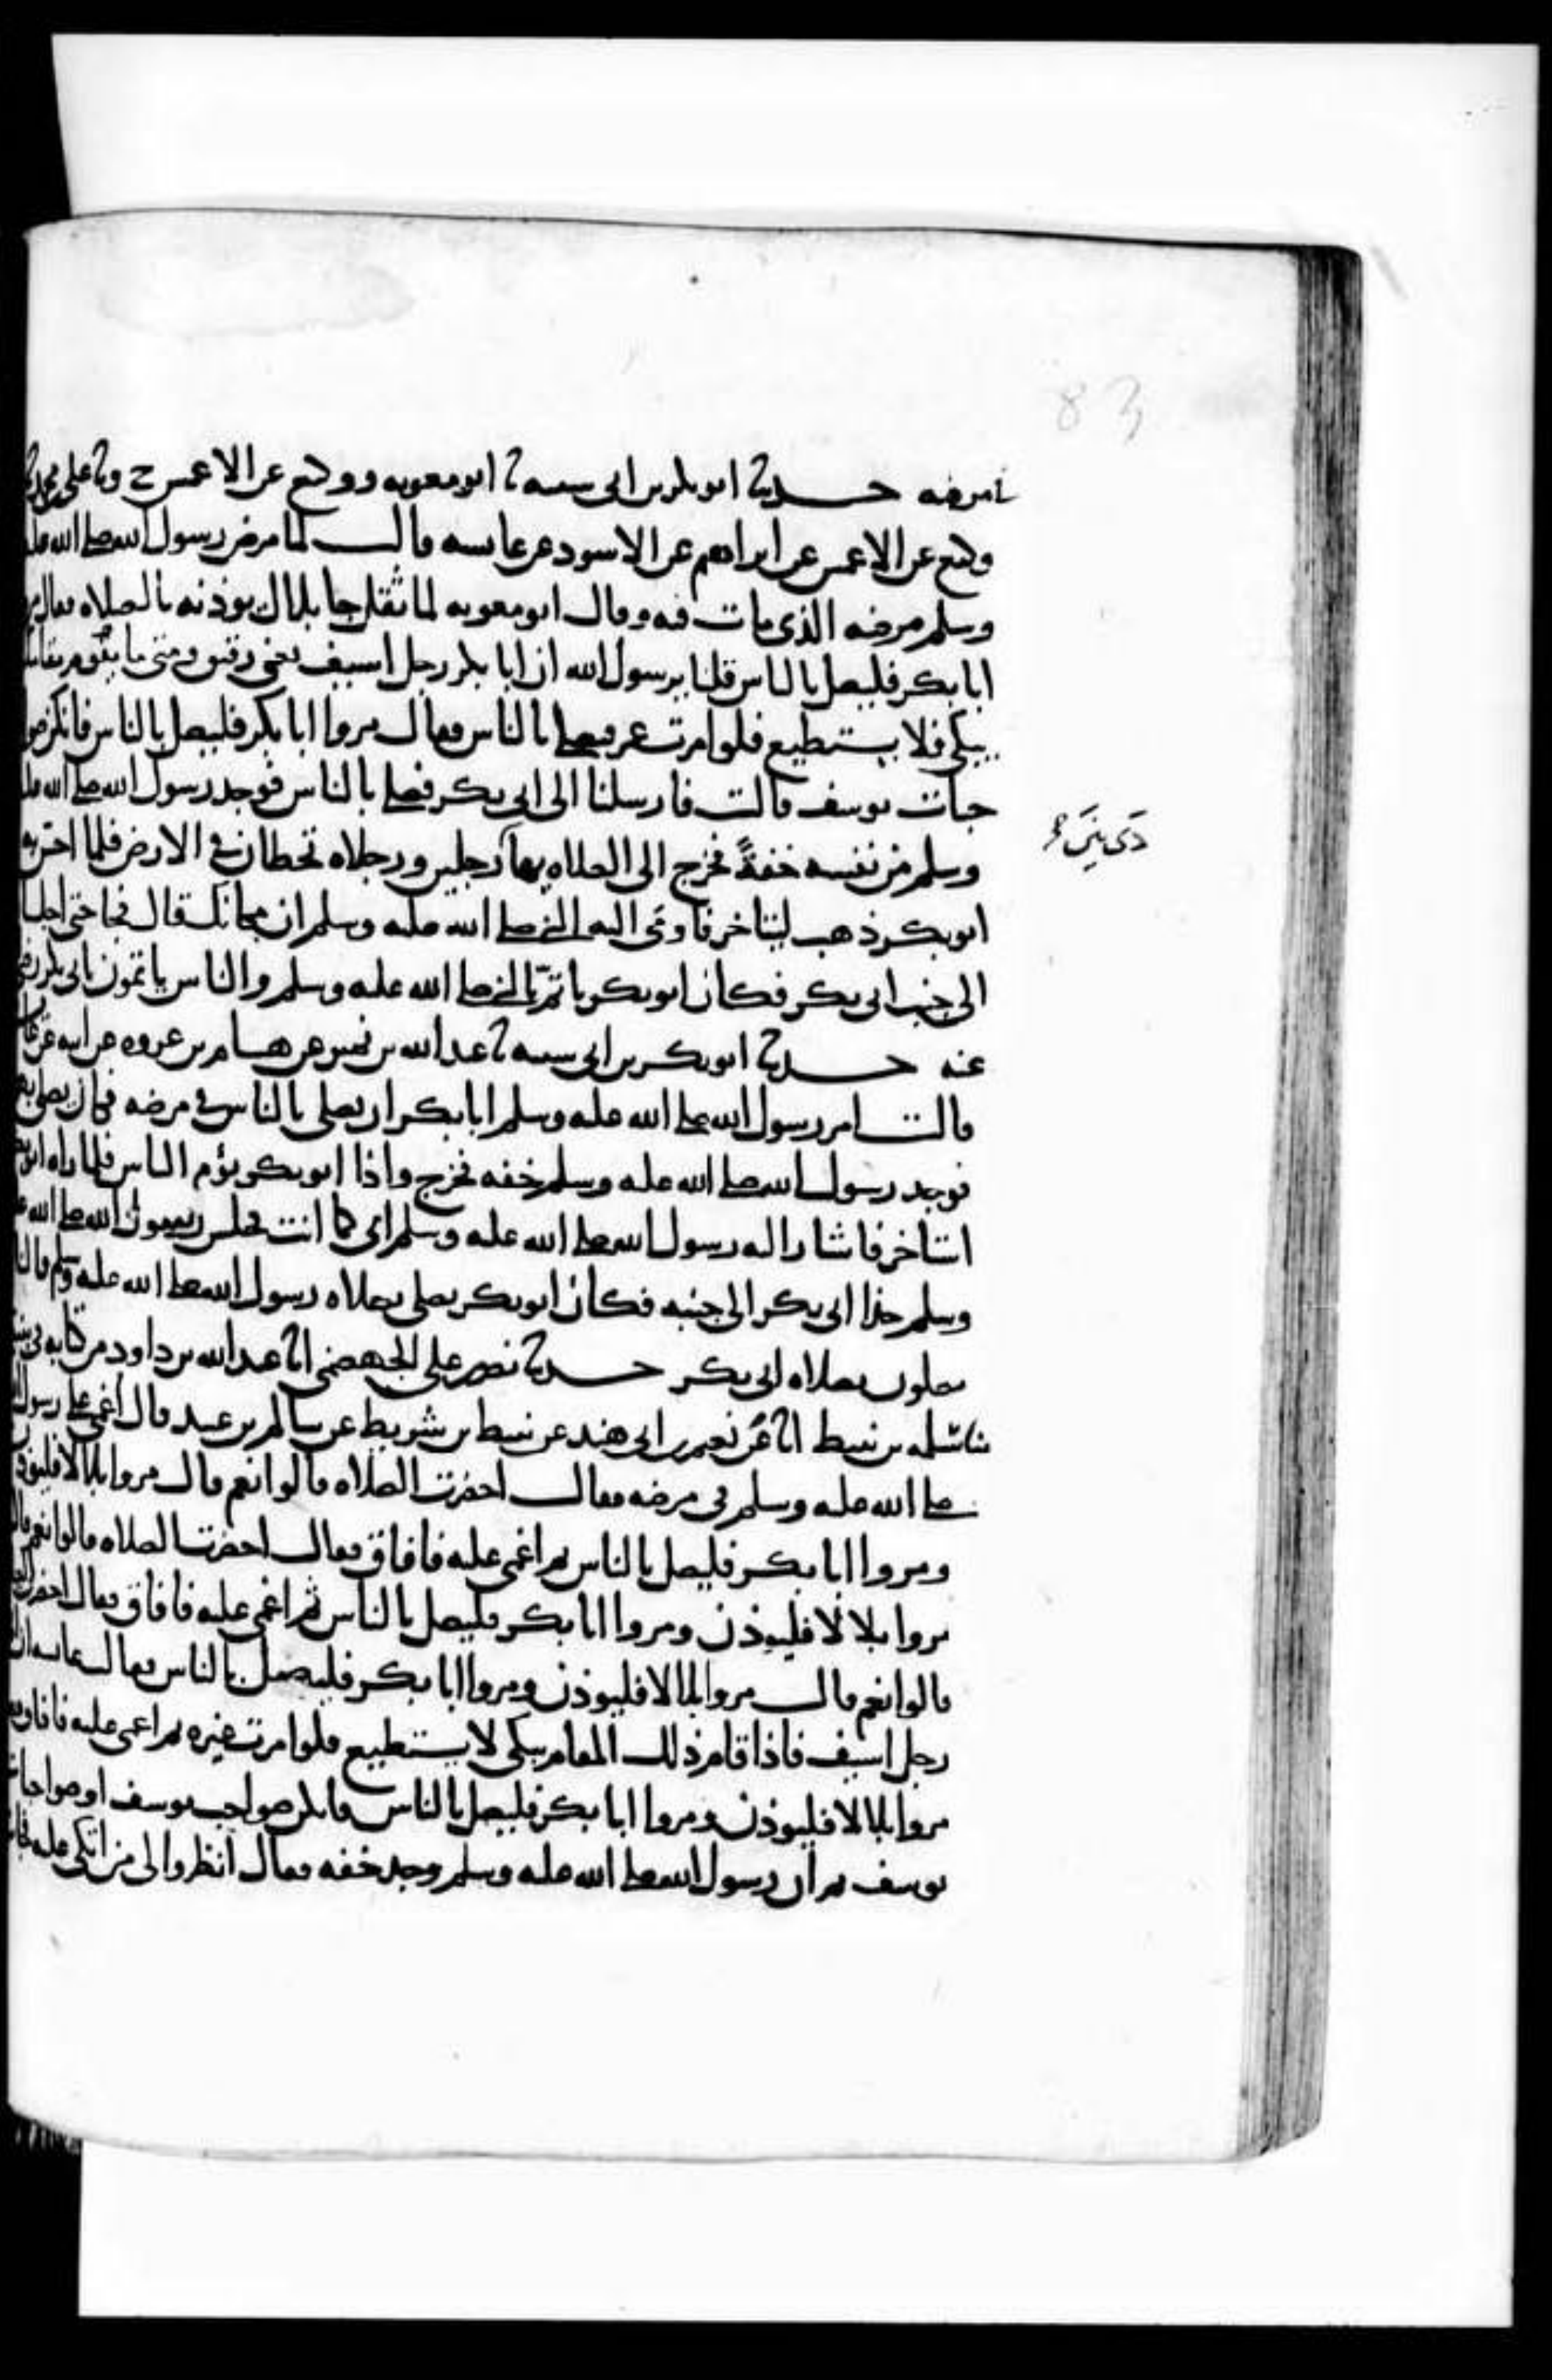 83
في مرضه حدثنا ابو بكر بن ابى شيبه ثنا ابو معويه ووكيع عن الاعمش ح وثنا على بن محمد ثنا
وكيع عن الاعمش عن ابراهيم عن الاسود عن عائشه قالت لما مرض رسول الله صلى الله عليه
وسلم مرضه الذى مات فيه وقال ابو معويه لما ثقل جا بلال يوذنه بالصلاه فقال مروا
ابا بكر فليصل بالناس قلنا يرسول الله ان ابا بكر رجل اسيف تعنى رقيق ومتى ما يقوم مقامك
يبكى فلا يستطيع فلو امرت عمر فصلى بالناس فقال مروا ابا بكر فليصل بالناس فانكن صوا
حبات يوسف قالت فارسلنا الى ابى بكر فصلى بالناس فوجد رسول الله صلى الله عليه
وسلم من نفسه خفةً فخرج الى الصلاه يهادى رجلين ورجلاه تخطان فى الارض فلما احس به
ابو بكر ذهب ليتاخر فاومى اليه النبي صلى الله عليه وسلم ان مكانك قال فجا حتى اجلساه
الى جنب ابى بكر فكان ابو بكر ياتمّ بالنبي صلى الله عليه وسلم والناس ياتمون بابى بكر رضى
عنه حدثنا ابو بكر بن ابى شيبه ثنا عبد الله بن نمير عن هشام بن عروه عن ابيه عن عائشه
قالت امر رسول الله صلى الله عليه وسلم ابا بكر ان يصلى بالناس فى مرضه فكان يصلى بهم
فوجد رسول الله صلى الله عليه وسلم خفه فخرج واذا ابو بكر يؤم الناس فلما راه ابو بكر
استاخر فاشار اليه رسول الله صلى الله عليه وسلم اى كما انت فجلس رسول الله صلى الله عليه
وسلم حذا ابى بكر الى جنبه فكان ابو بكر يصلى بصلاه رسول الله صلى الله عليه وسلم والناس
يصلون بصلاه ابى بكر حدثنا نصر بن على الجهضمى انا عبد الله بن داود من كتابه فى بيته
ثنا سلمه بن نبيط انا عن نعيم بن ابى هند عن نبيط بن شريط عن سالم بن عبيد قال اغمى على رسول الله
صلى الله عليه وسلم فى مرضه فقال احضرت الصلاه قالوا نعم قال مروا بلالا فليوذن
ومروا ابا بكر فليصل بالناس ثم اغمى عليه فافاق فقال احضرت الصلاه قالوا نعم قال
مروا بلالا فليوذن ومروا ابا بكر فليصل بالناس ثم اغمى عليه فافاق فقال احضرت الصلاه
قالوا نعم قال مروا بلالا فليوذن ومروا ابا بكر فليصل بالناس فقالت عائشه ان ابى
رجل اسيف فاذا قام ذلك المقام يبكى لا يستطيع فلو امرت غيره ثم اغمى عليه فافاق فقال
مروا بلالا فليوذن ومروا ابا بكر فليصل بالناس فانكن صواحب يوسف او صواحبات
يوسف ثم ان رسول الله صلى الله عليه وسلم وجد خفه فقال انظروا لى من اتكى عليه فجات